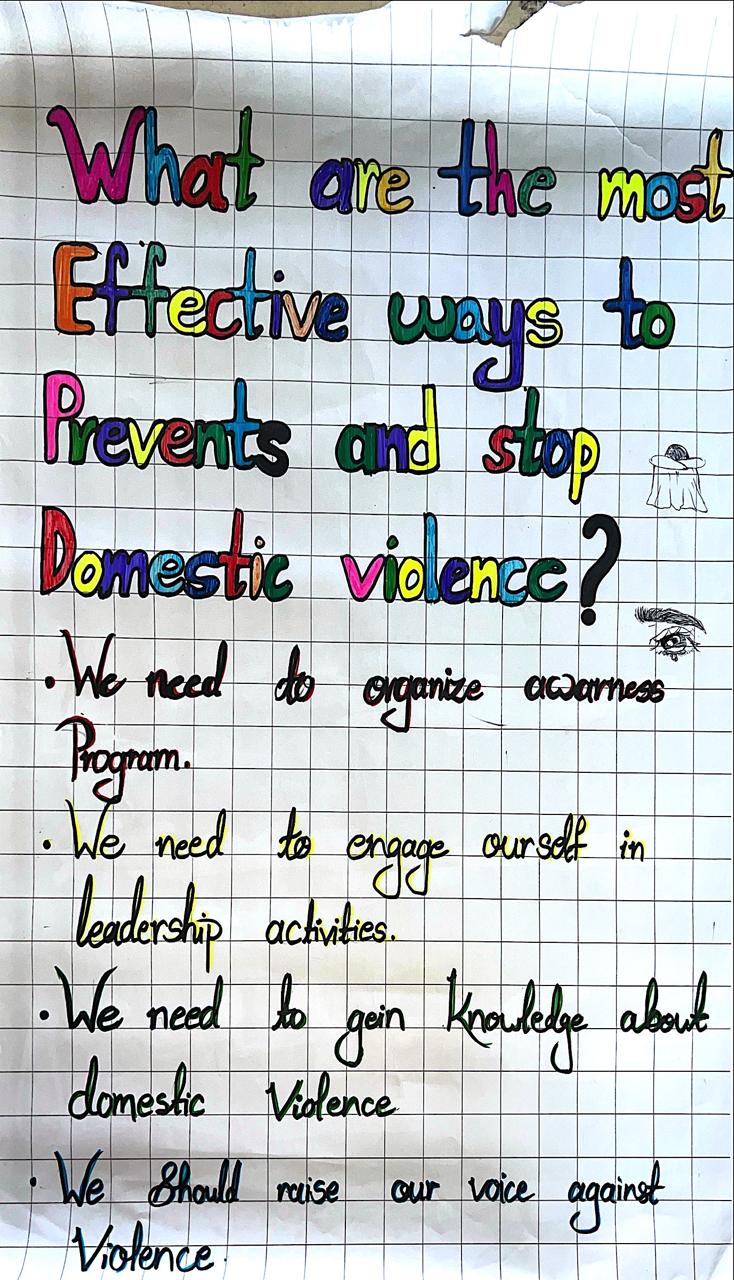 What are the most
Effective ways to
Prevents and stop
Domestic violence?
• We need to organize awarness
Program.
• We need to engage ourself in
leadership activities.
• We need to gein Knowledge about
domestic Violence
• We Should raise our voice against
Violence.